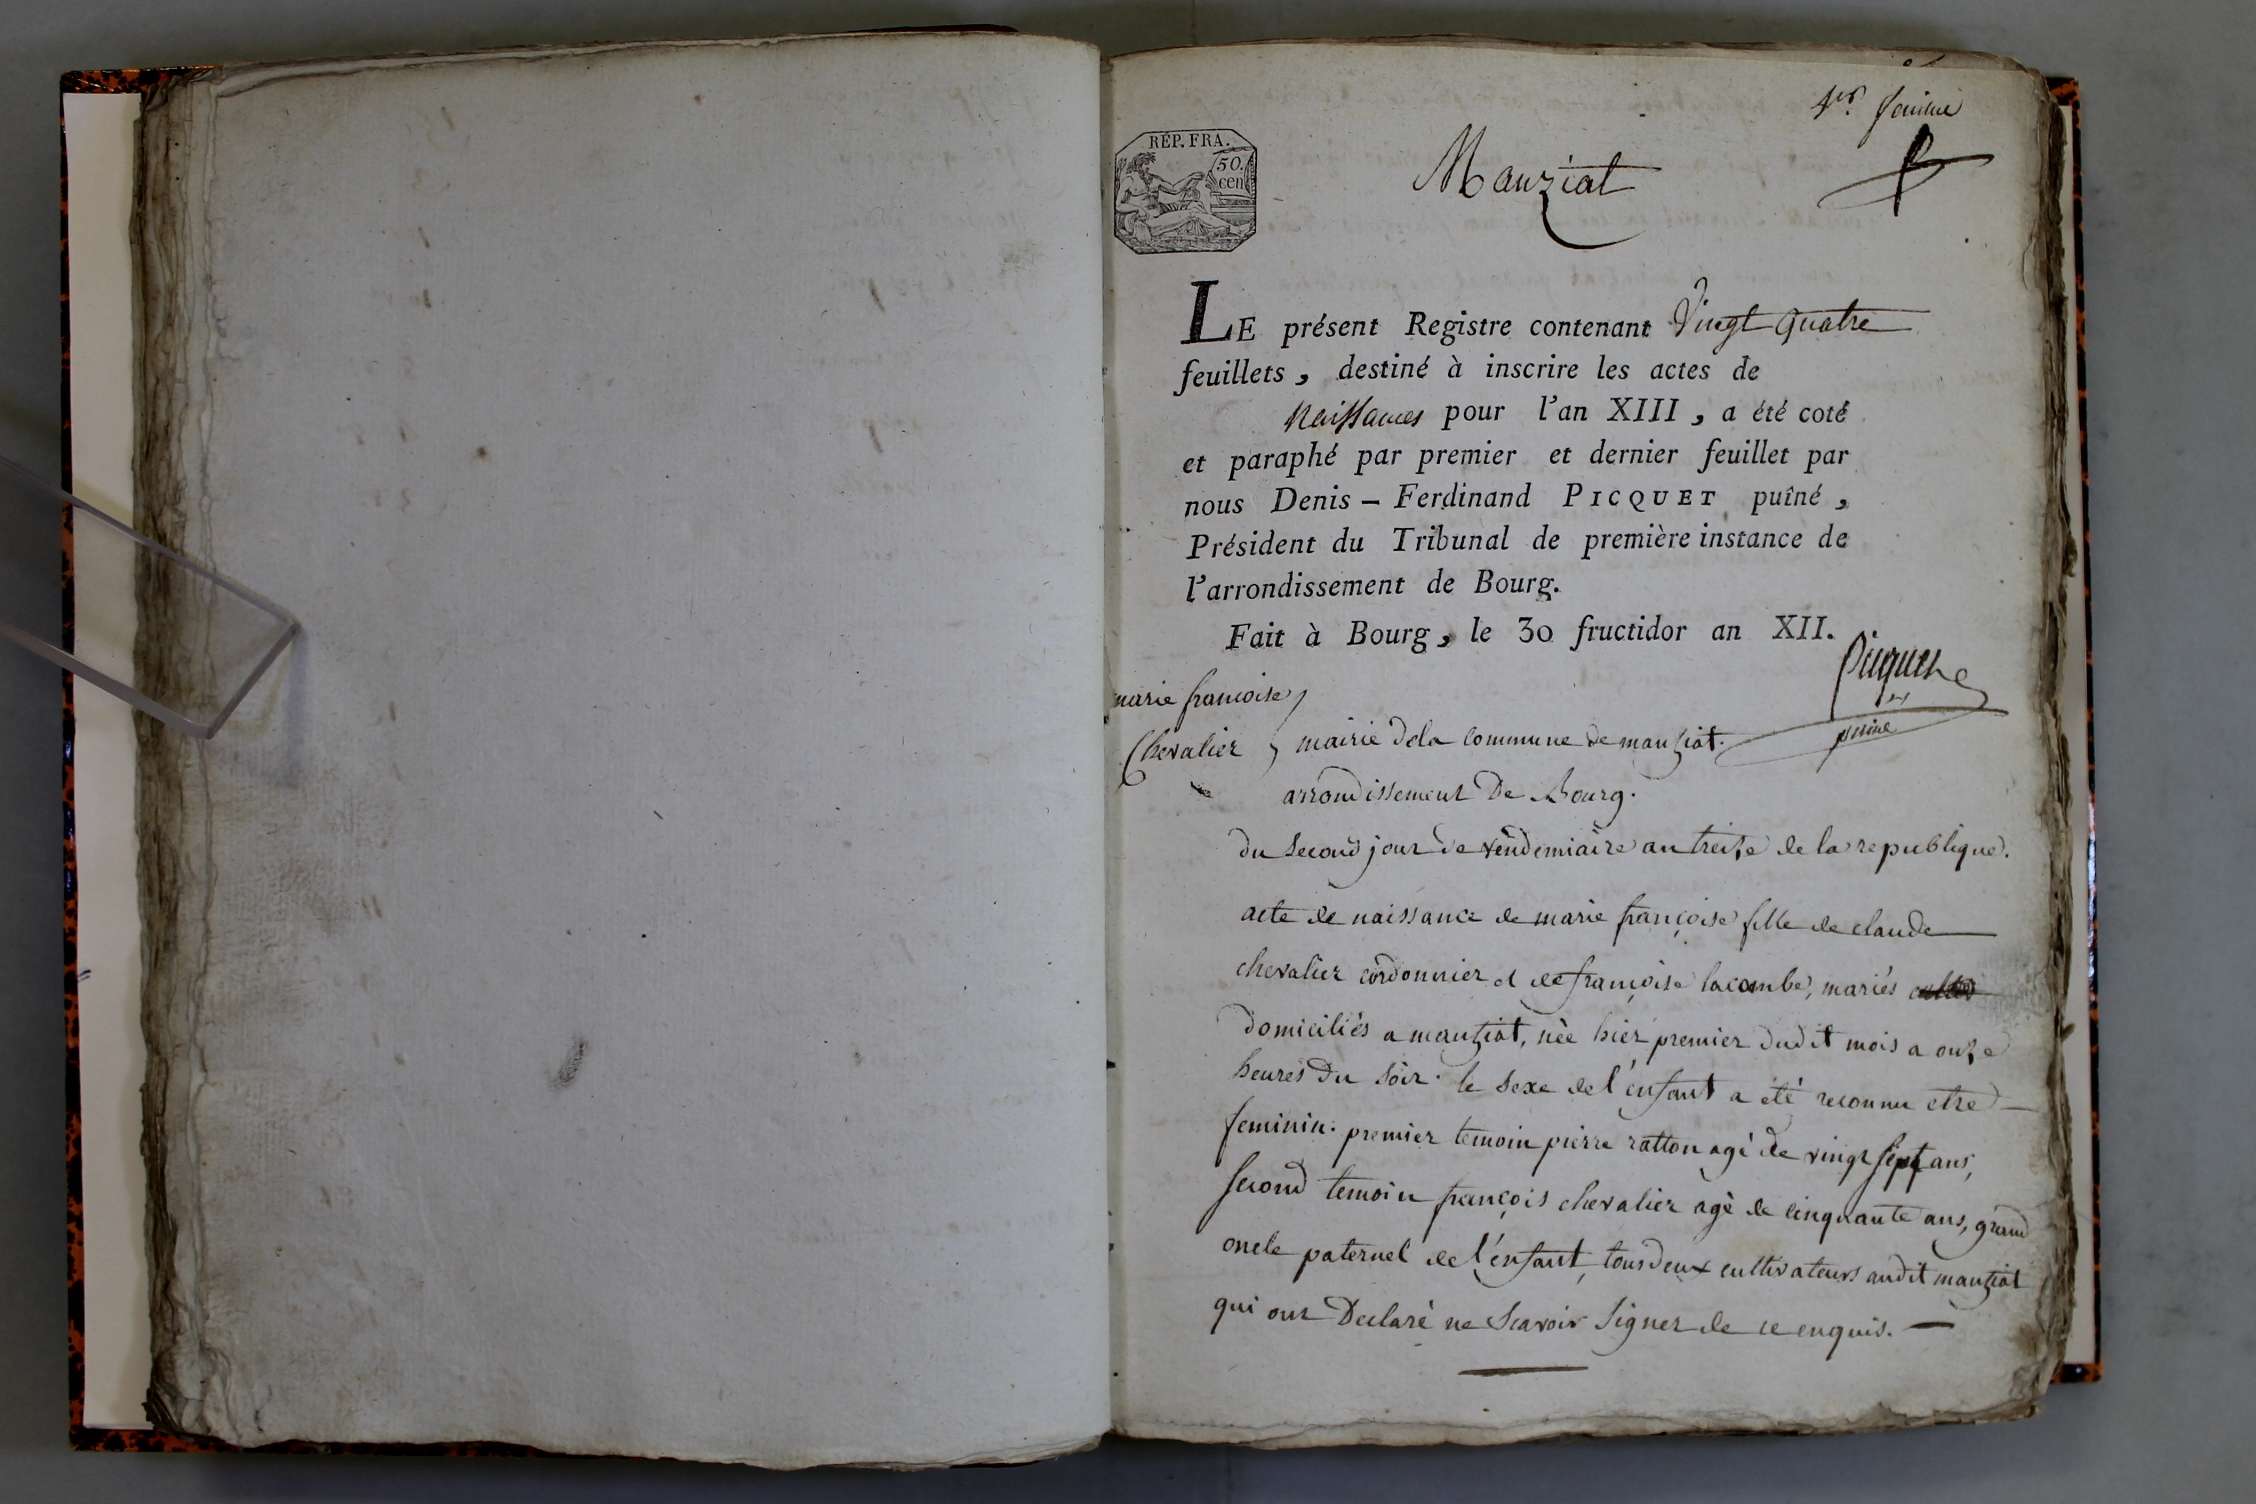 1er feuillet
RÉP. FRA.
50.
cen
Manziat
LE présent Registre contenant Vingt quatre
feuillets, destiné à inscrire les actes de
Naissances pour l'an XIII, a été coté
et paraphé par premier et dernier feuillet par
nous Denis – Ferdinand PICQUET puîné,
Président du Tribunal de première instance de
l'arrondissement de Bourg.
Fait à Bourg, le 30 fructidor an XII.
Picquet
puiné
marie francoise
Chevalier
mairie dela commune de manziat.
arrondissement De Bourg.
du second jour de vendemiaire an treize de la republique.
acte de naissance de marie françoise fille de claude
chevalier cordonnier et de françoise lacombe, mariés
domiciliés a manziat, née hier premier dudit mois a onze
heures Du soir. le sexe de l'enfant a été reconnu etre
feminin. premier temoin pierre ratton agé de vingt sept ans,
second temoin françois chevalier agé de cinquante ans, grand
oncle paternel de l'enfant, tous deux cultivateurs audit manziat
qui ont Declaré ne scavoir signer de ce enquis.